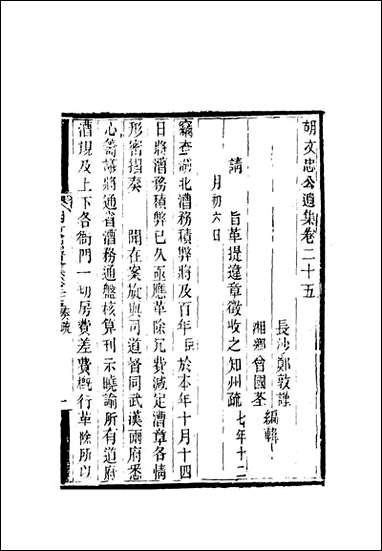 胡文忠公遺集卷二十五
長沙鄭敦謹
湘鄉曾國荃
編輯
請　旨革提違章徵收之知州疏　七年十二
月初六日
竊查湖北漕務積弊將及百年臣於本年十月十四
日將漕務積弊已久亟應革除冗費減定漕章各情
形密摺奏　聞在案旋與司道督同武漢兩府悉
心籌議將通省漕務通盤核算刊示曉諭所有道府
漕規及上下各衙門一切房費差費概行革除所以
奏疏
一